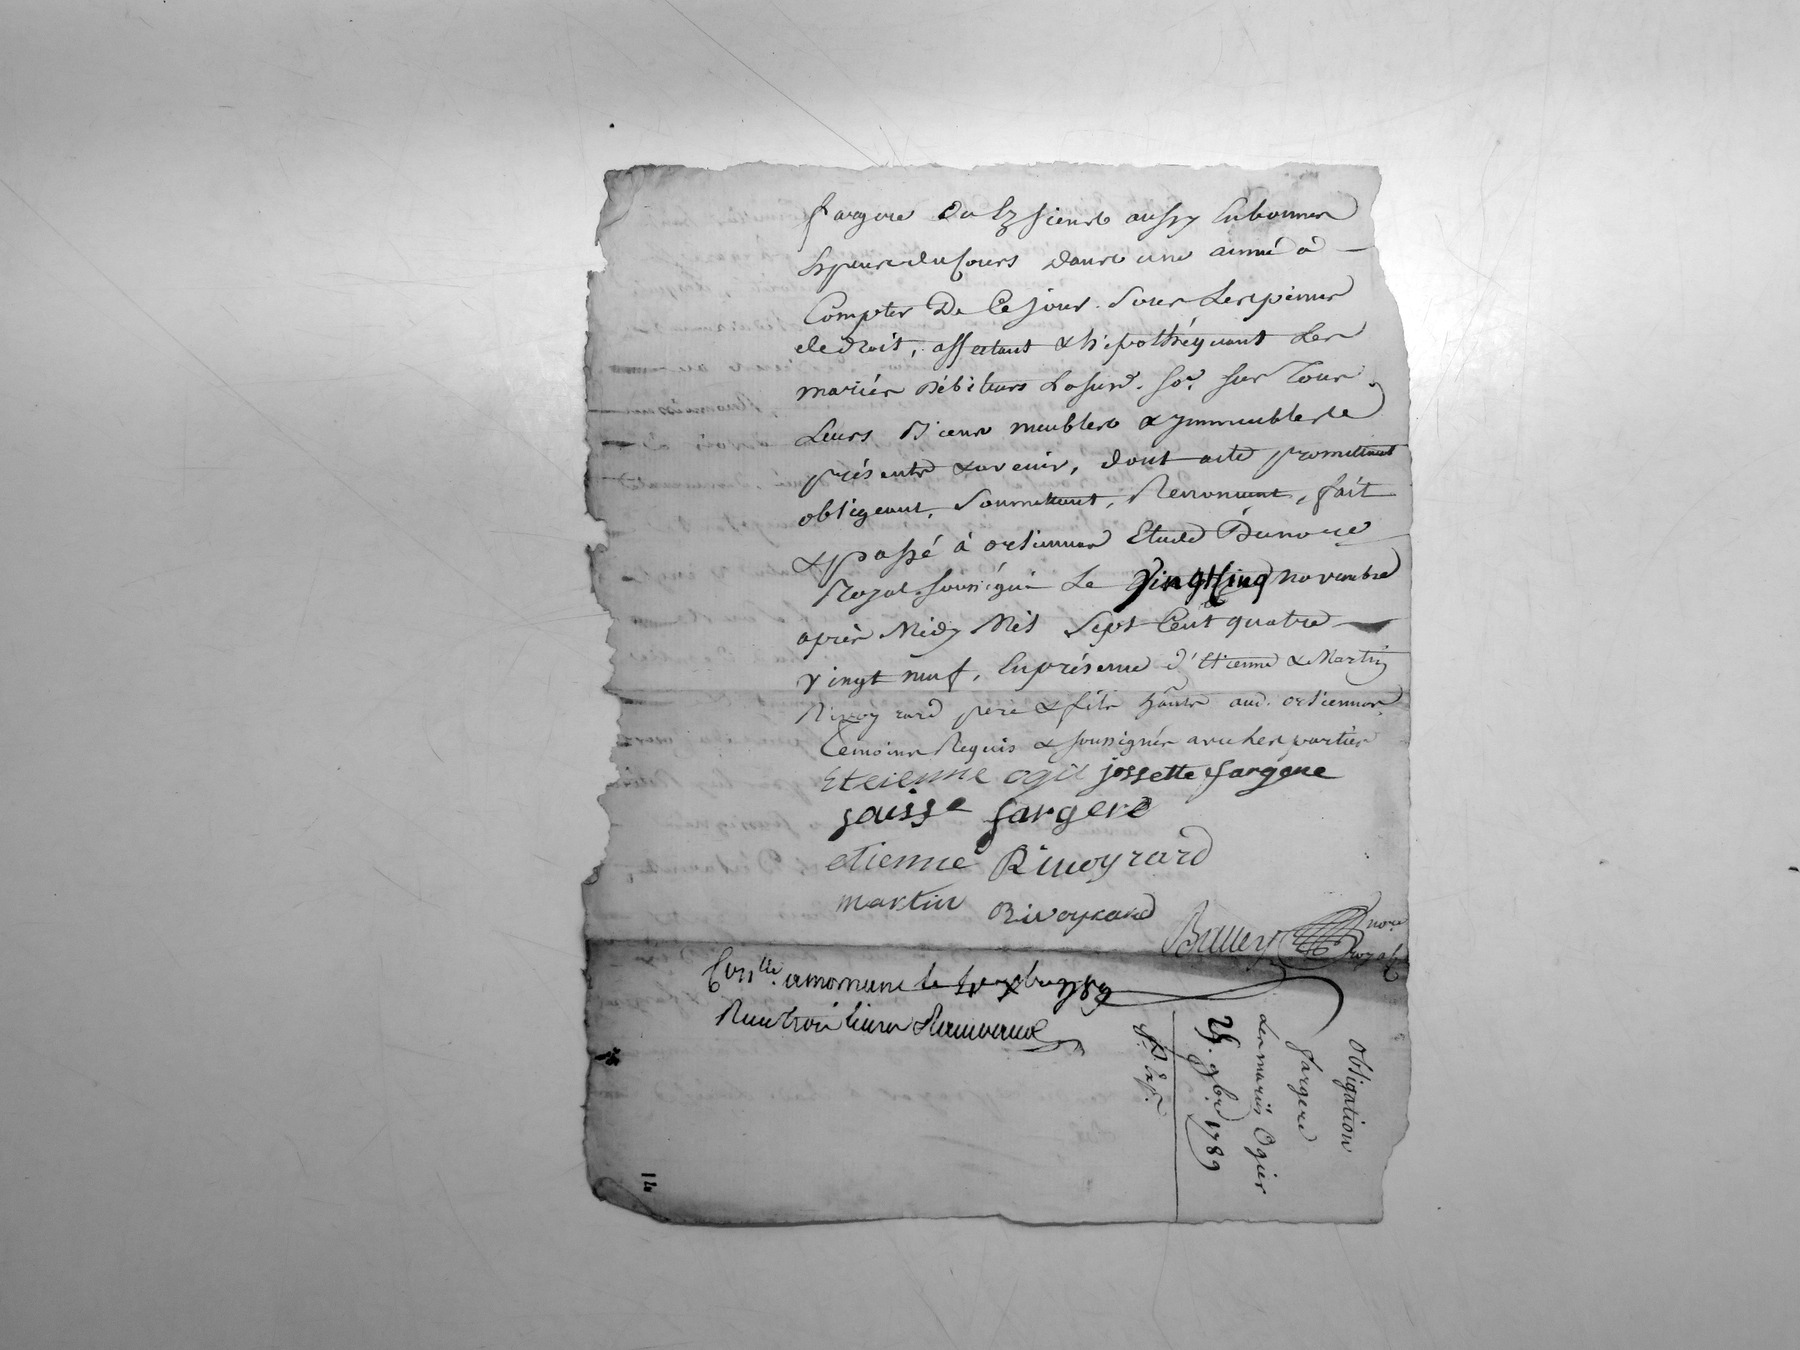 fargere
Compter De Ce jour. Sous Les peines
de droit, affectant & h'ipothéquant Les
mariés Débiteurs La susd. So.e sur Tous
Leurs Biens meubles & ymmeubles
présents & avenir, dont acte promettant
obligeant, Soumettant, Renonçant, fait
& passé à ortiennas Etude Du no.re
Royal soussigné Le Vingt Cinq novembre
après Midy Mil Sept Cent quatre
vingt neuf, En présence d'Etienne & Martin
Rivoyrard père & fils hãnts aud. ortiennas
Témoins Requis & soussignés avec Les parties
Eteienne ogié jossette fargere
fargere
etienne Rivoyrard
martin Rivoyrard
no.re royal
Con.lle 1789
Obligation
fargere
Les mariés Ogier
25. 9bre 1789
14